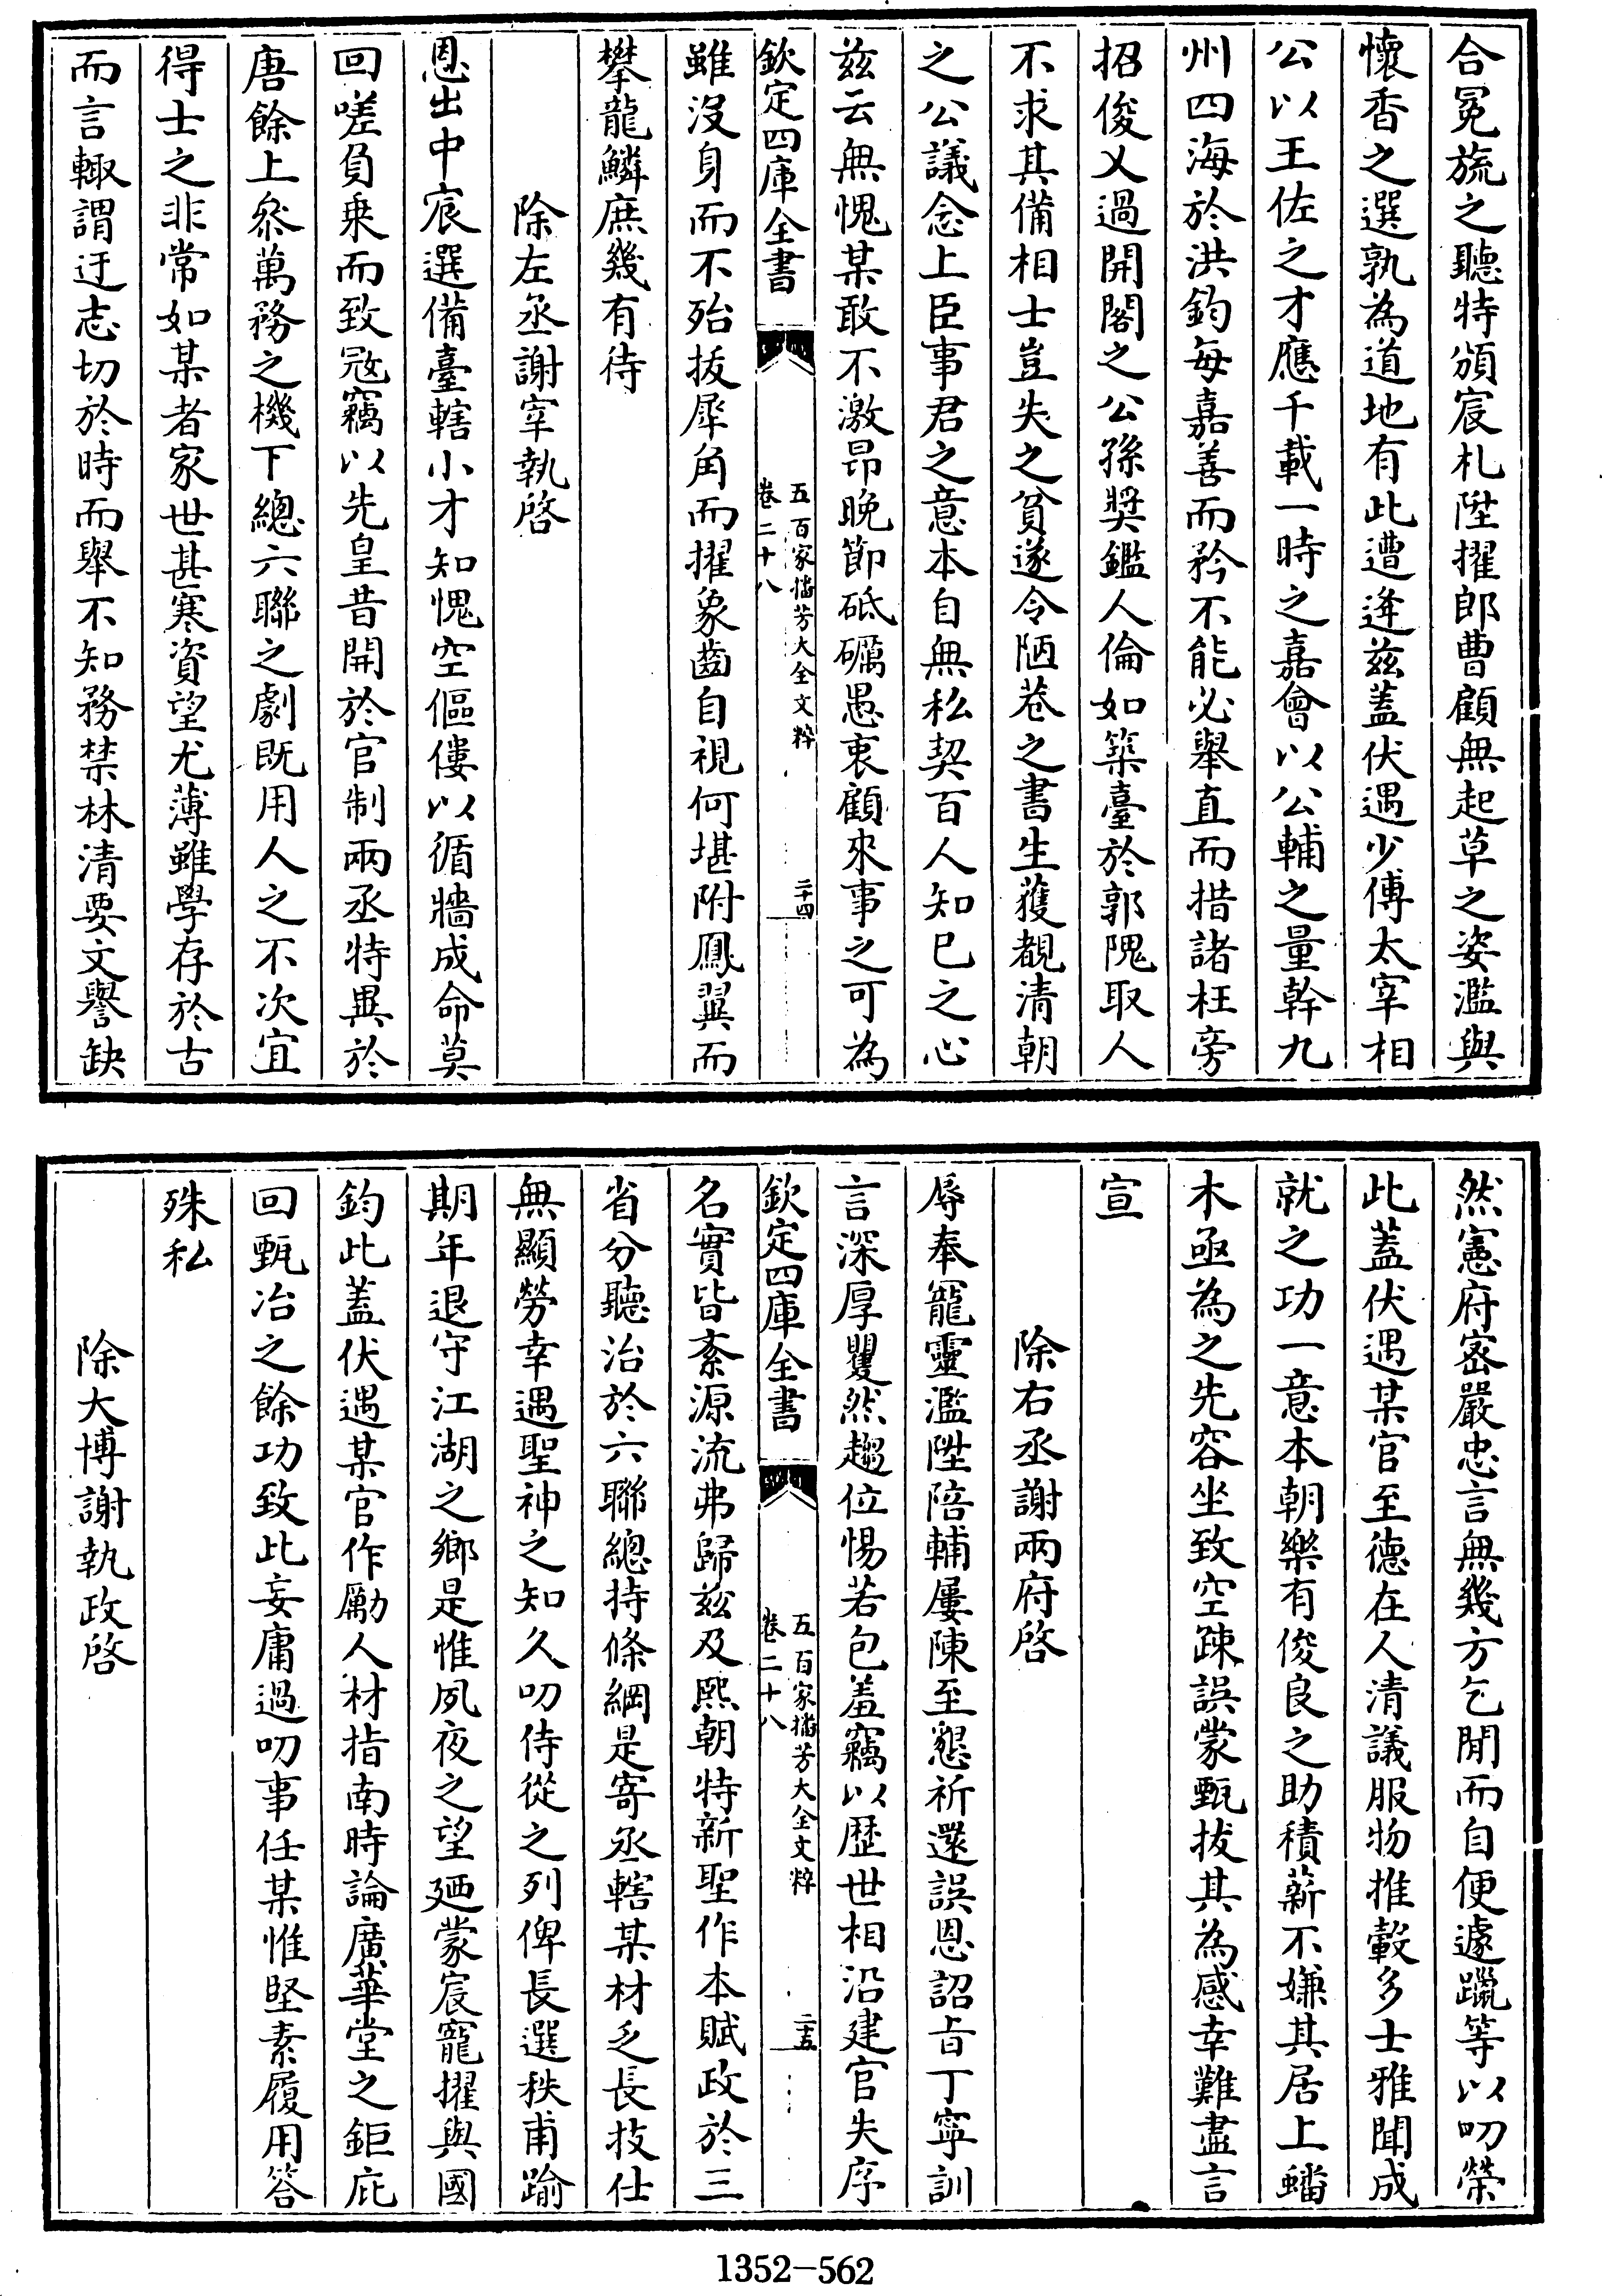 合冕旒之聽特頒宸札陞擢郎曹顧無起草之姿濫與
懷香之選孰為道地有此遭逄茲蓋伏遇少傅太宰相
公以王佐之才應千載一時之嘉會以公輔之量斡九
州四海於洪鈞每嘉善而矜不能必舉直而措諸枉旁
招俊乂過開閣之公孫奬鑑人倫如築臺於郭隗取人
不求其備相士豈失之貧遂令陋巷之書生獲覩清朝
之公議念上臣事君之意本自無私契百人知已之心
茲云無愧某敢不激昂晚節砥礪愚衷顧來事之可為
欽定四庫全書
五百家播芳大全文粹
卷二十八
二十四
雖沒身而不殆拔犀角而擢象齒自視何堪附鳳翼而
攀龍鱗庶幾有待
除左丞謝宰執啓
恩出中宸選備臺轄小才知愧空傴僂以循牆成命莫
回嗟負乗而致宼竊以先皇昔開於官制兩丞特異於
唐餘上叅萬務之機下總六聯之劇既用人之不次宜
得士之非常如某者家世甚寒資望尤薄雖學存於古
而言輙謂迂志切於時而舉不知務禁林清要文譽缺
然憲府宻嚴忠言無幾方乞閒而自便遽躐等以叨榮
此蓋伏遇某官至德在人清議服物推轂多士雅聞成
就之功一意本朝樂有俊良之助積薪不嫌其居上蟠
木亟為之先容坐致空疎誤蒙甄拔其為感幸難盡言
宣
除右丞謝兩府啓
辱奉寵靈濫陞陪輔屢陳至懇祈還誤恩詔旨丁寧訓
言深厚矍然趨位惕若包羞竊以歴世相沿建官失序
欽定四庫全書
五百家播芳大全文粹
卷二十八
二十五
名實皆紊源流弗歸兹及熙朝特新聖作本賦政於三
省分聽治於六聯總持條綱是寄丞轄某材乏長技仕
無顯勞幸遇聖神之知久叨侍從之列俾長選秩甫踰
期年退守江湖之鄉是惟夙夜之望廼蒙宸寵擢與國
鈞此蓋伏遇某官作勵人材指南時論廣華堂之鉅庇
回甄冶之餘功致此妄庸過叨事任某惟堅素履用答
殊私
除大博謝執政啓
1352-562